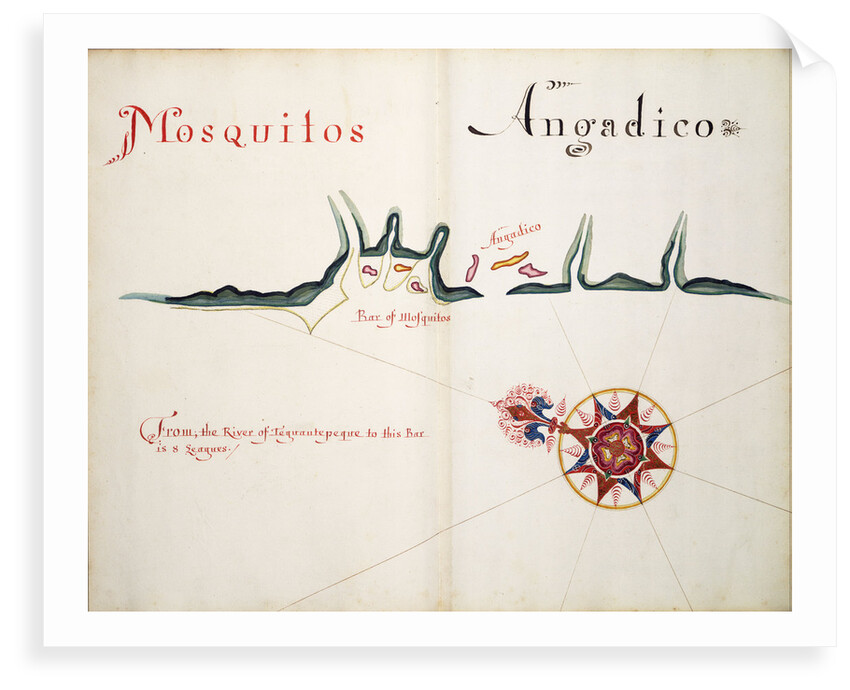 Mosquitos
Angadico
Angadico
Bar of Mosquitos
From, the River of Teguantepeque to this Bar
is 8 Leagues.